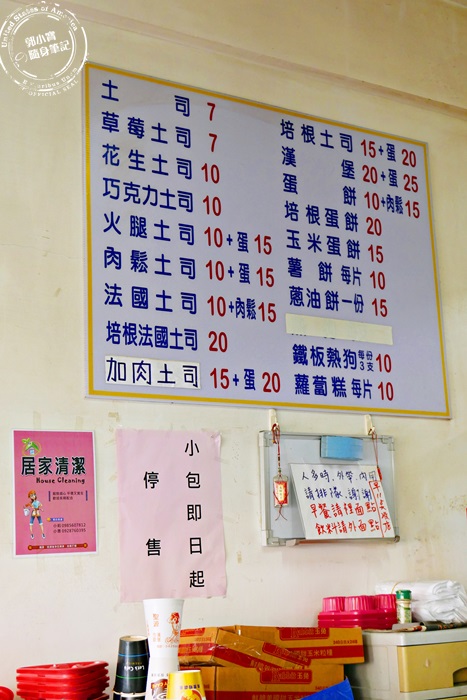 United States of America
郭小寶
隨身筆記
OFFICIAL SEAL
土司 7
草莓土司 7
花生土司 10
巧克力土司 10
火腿土司 10+蛋 15
肉鬆土司 10+蛋 15
法國土司 10+肉鬆 15
培根法國土司 20
加肉土司 15+蛋 20
培根土司 15+蛋 20
漢堡 20+蛋 25
蛋餅 10+肉鬆 15
培根蛋餅 20
玉米蛋餅 15
薯餅每片 10
蔥油餅一份 15
鐵板熱狗每份3支 10
蘿蔔糕每片 10
居家清潔
House Cleaning
小包即日起
停售
人多時,外帶、內用
請排隊,謝謝
早餐請裡面點
飲料請外面點